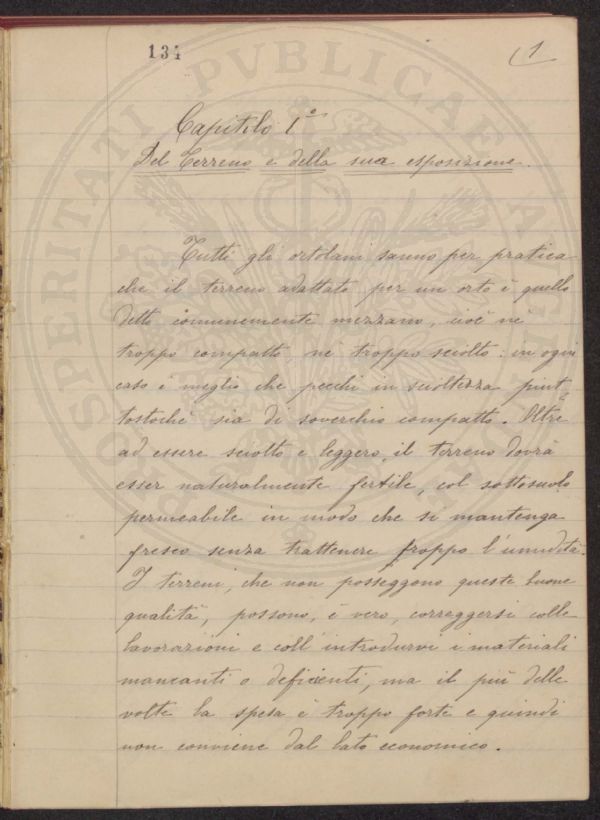 134
1
Capitolo 1º
Del Terreno e della sua esposizione.
Tutti gli ortolani sanno per pratica
che il terreno adattato per un orto è quello
detto comunemente mezzano, cioè nè
troppo compatto nè troppo sciolto: in ogni
caso è meglio che pecchi in scioltezza piut=
tostochè sia di soverchio compatto. Oltre
ad essere sciolto e leggero, il terreno dovrà
esser naturalmente fertile, col sottosuolo
permeabile in modo che si mantenga
fresco senza trattenere troppo l'umidità.
I terreni, che non posseggono queste buone
qualità, possono, è vero, correggersi colle
lavorazioni e coll'introdurvi i materiali
mancanti o deficienti, ma il più delle
volte la spesa è troppo forte e quindi
non conviene dal lato economico.
PROSPERITATI PVBLICAE AVGENDAE